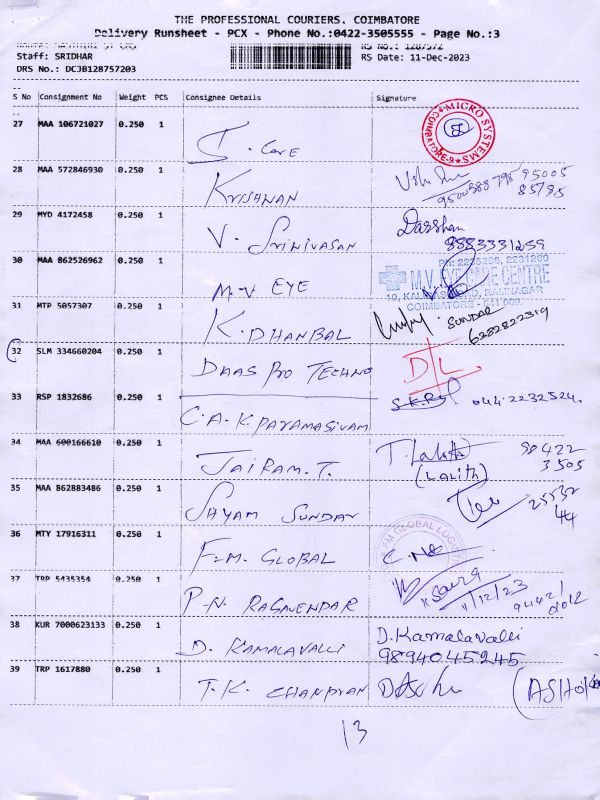 THE PROFESSIONAL COURIERS. COIMBATORE
Delivery Runsheet - PCX - Phone No.:0422-3505555 - Page No.:3
Staff: SRIDHAR
RS Date: 11-Dec-2023
DRS No.: DCJB128757203
S No Consignment No Weight PCS Consignee Details Signature
27 MAA 106721027 0.250 1 I. Care MICRO SYSTEMS COIMBATORE-9
28 MAA 572846930 0.250 1 Krishnan
29 MYD 4172458 0.250 1 V. Srinivasan Darshan
8883331259
30 MAA 862526962 0.250 1 M-V EYE PH: 2235236, 2231260
M.V. EYE CARE CENTRE
RAMNAGAR
COIMBATORE - 641 009.
31 MTP 5057307 0.250 1 K. DHANBAL SUNDAR
6282822319
32 SLM 334660204 0.250 1 DAAS Pro TECHNO D/L
33 RSP 1832686 0.250 1 C.A.K. PARAMASIVAM 044-2232524.
34 MAA 600166610 0.250 1 JAIRAM. T. T. Lalith 98422
(LALITH) 3505
35 MAA 862883486 0.250 1 SHYAM SUNDAR 25532
44
36 MTY 17916311 0.250 1 F.M. GLOBAL FM GLOBAL LOGIST
37 TRP 5435354 0.250 1 P-N. RAGAVENDAR 11/12/23
38 KUR 7000623133 0.250 1 D. KAMALAVALLI D. Kamalavalli
9894045245
39 TRP 1617880 0.250 1 T. K. CHANDRAN (ASHOK
13